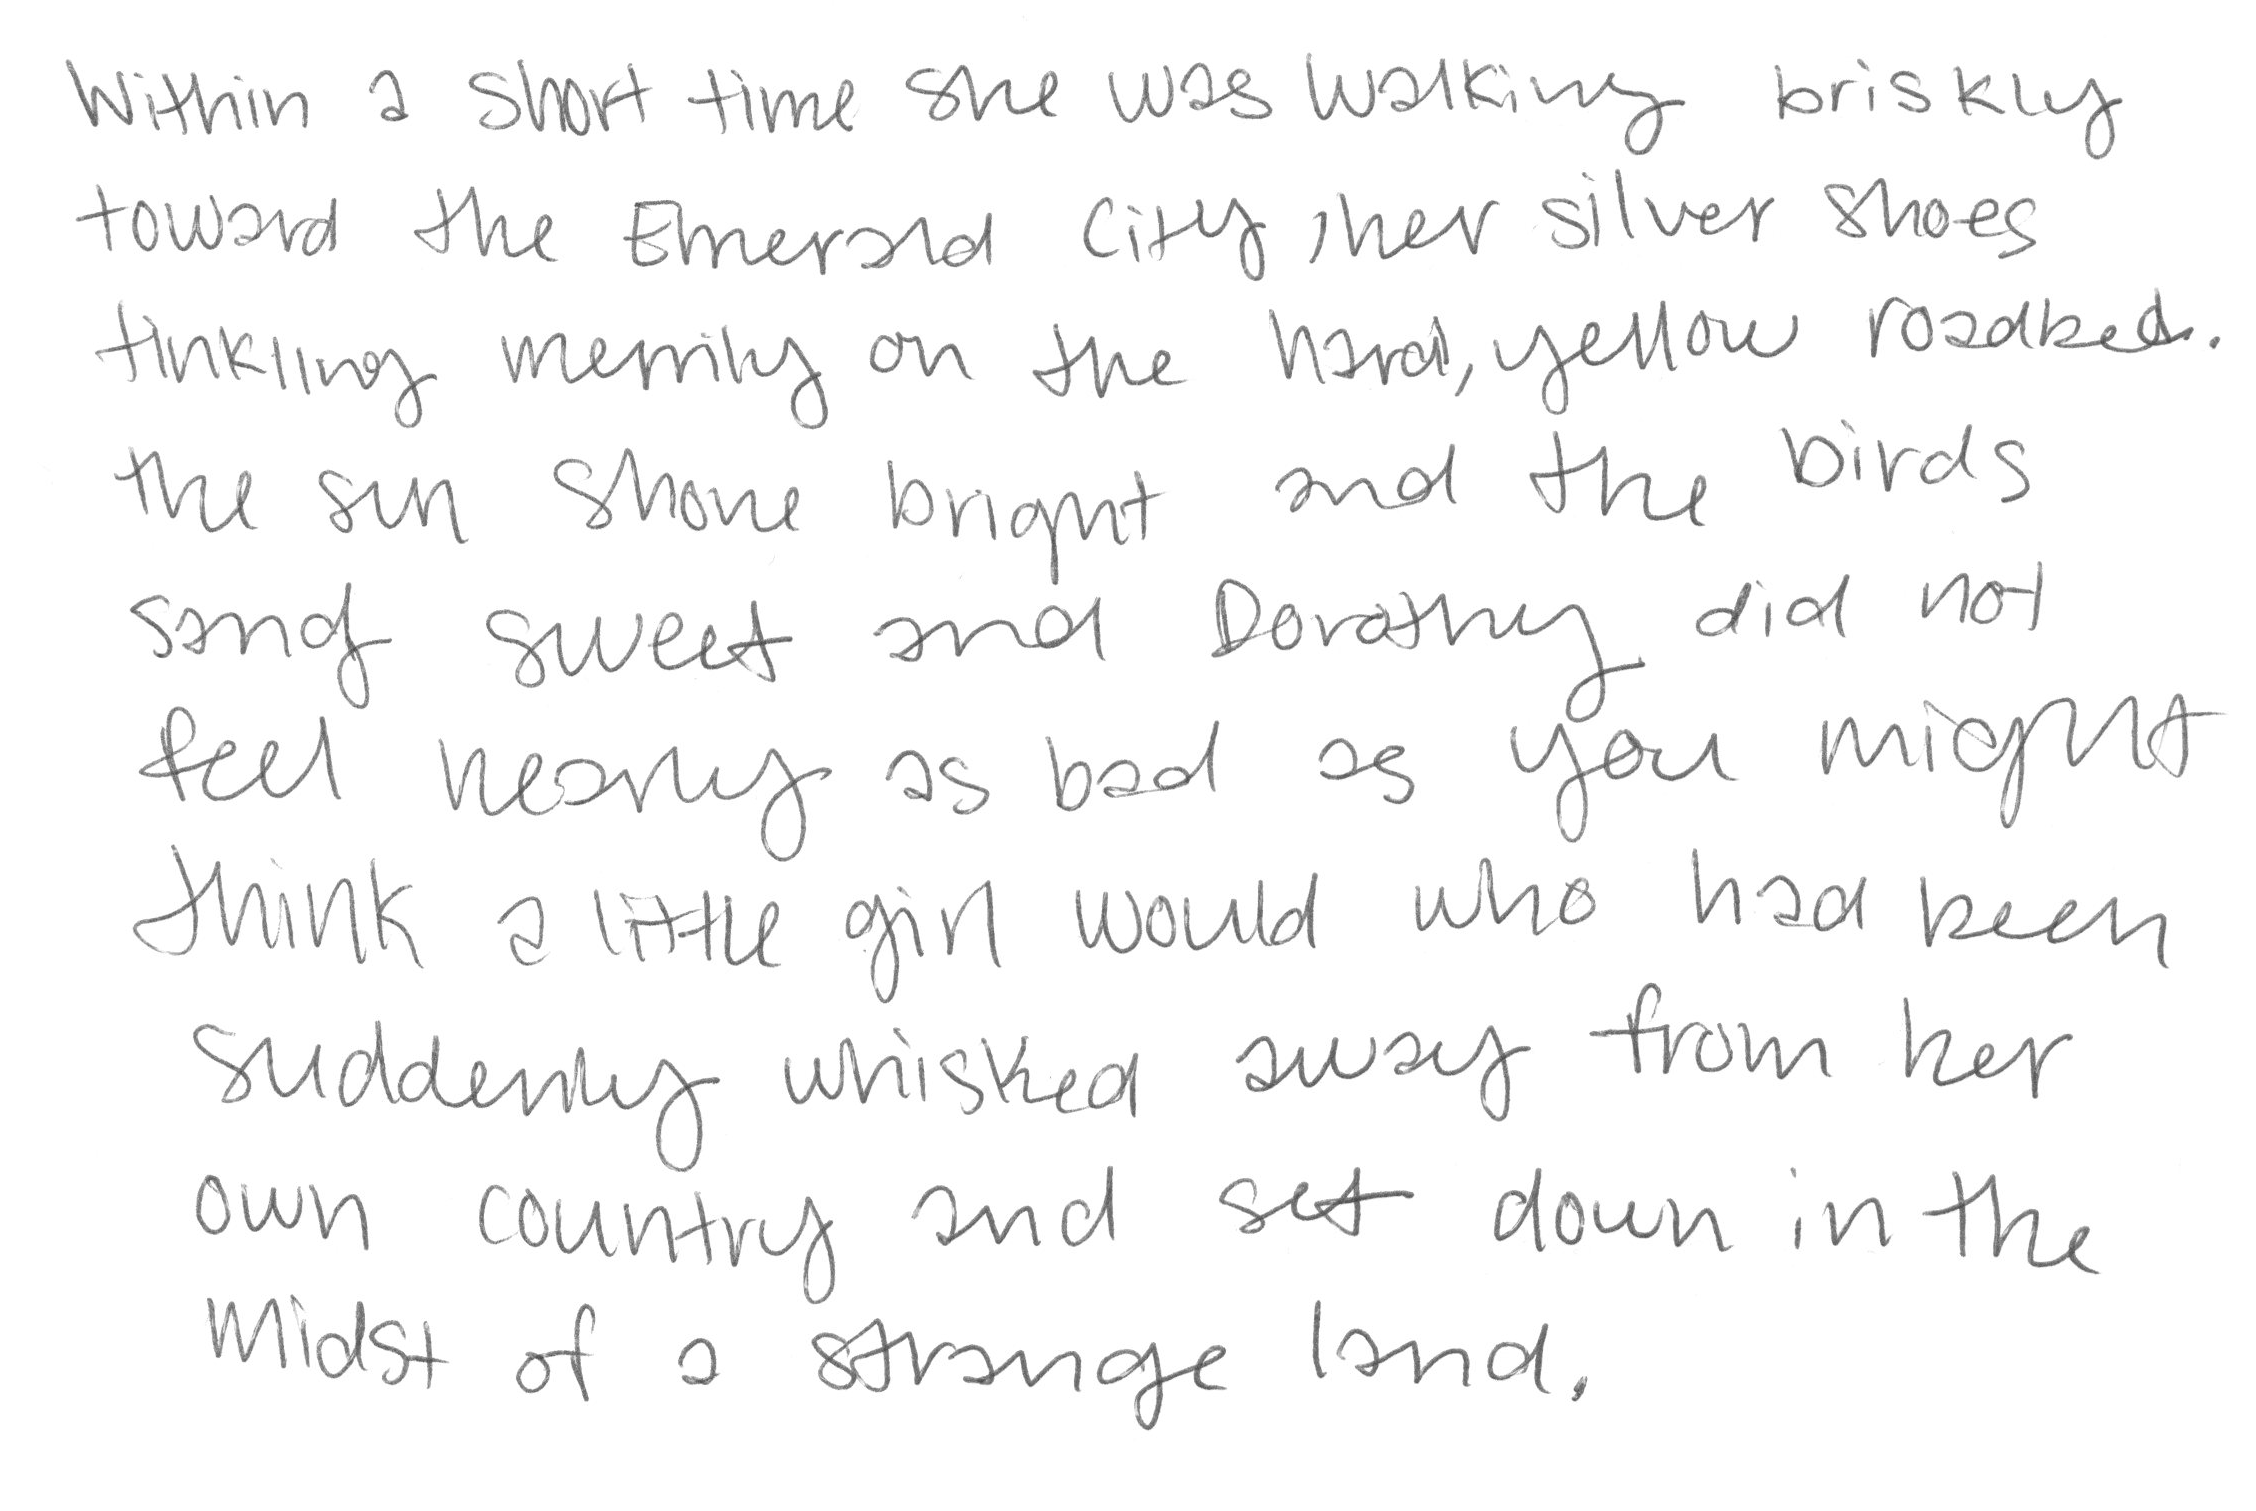 Within a short time she was walking briskly
toward the Emerald City, her silver shoes
tinkling merrily on the hard, yellow roadbed.
the sun shone bright and the birds
sang sweet and Dorothy did not
feel nearly as bad as you might
think a little girl would who had been
suddenly whisked away from her
own country and set down in the
midst of a strange land.